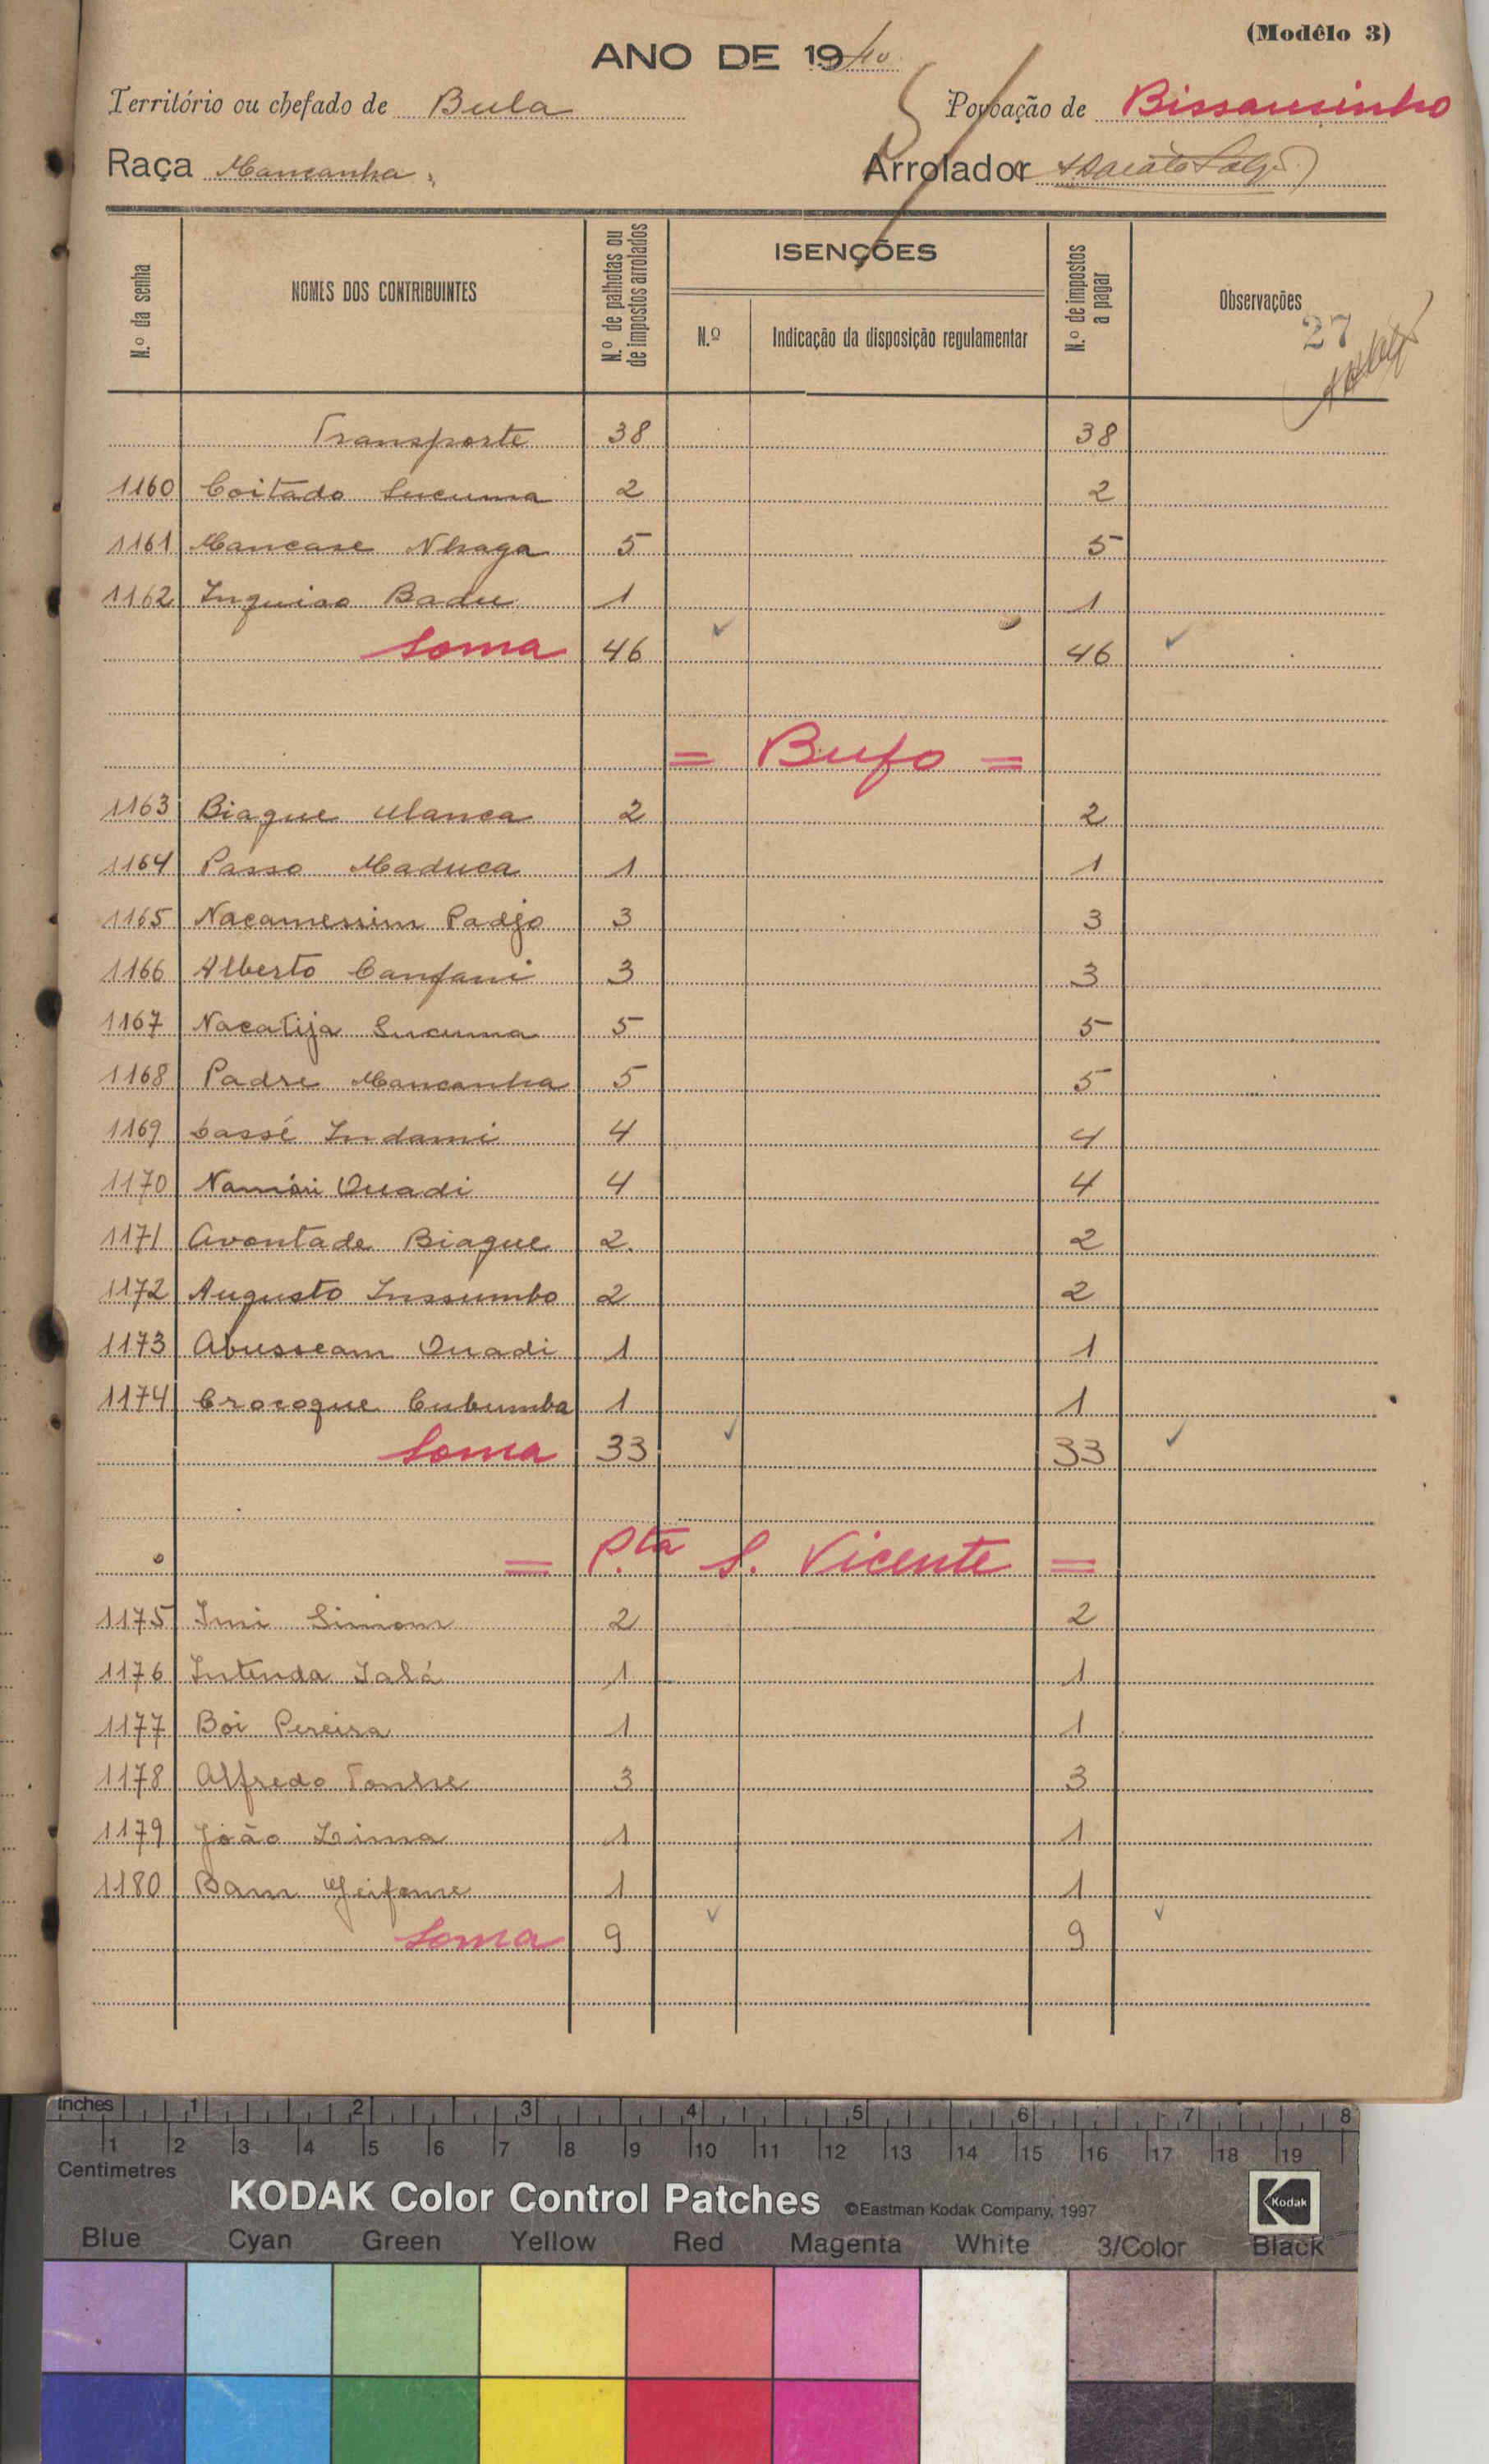 (Modêlo 3)
ANO DE 1940
Território ou chefado de Bula Povoação de Bissausinho
Raça Mancanha Arrolador
N.º da senha NOMES DOS CONTRIBUINTES N.º de palhotas ou de impostos arrolados ISENÇÕES N.º Indicação da disposição regulamentar N.º de impostos a pagar Observações
27
Transporte 38 38
1160 Coitado Sucuma 2 2
1161 Mancase Nhaga 5 5
1162 Inquiao Badu 1 1
Soma 46 46
= Bufo =
1163 Biague Ulanca 2 2
1164 Passo Maduca 1 1
1165 Nacamessim Padjo 3 3
1166 Alberto Canfani 3 3
1167 Nacatija Sucuma 5 5
1168 Padre Mancanha 5 5
1169 Cassé Indami 4 4
1170 Namôri Ouadi 4 4
1171 Avontade Biague 2 2
1172 Augusto Inssumbo 2 2
1173 Abusseam Ouadi 1 1
1174 Crocoque Cubumba 1 1
Soma 33 33
= P.ta S. Vicente =
1175 Imi Simom 2 2
1176 Intenda Ialá 1 1
1177 Boi Pereira 1 1
1178 Alfredo 3 3
1179 João Lima 1 1
1180 Bam 1 1
Soma 9 9
Inches 1 2 3 4 5 6 7 8
1 2 3 4 5 6 7 8 9 10 11 12 13 14 15 16 17 18 19
Centimetres
KODAK Color Control Patches ©Eastman Kodak Company, 1997 Kodak
Blue Cyan Green Yellow Red Magenta White 3/Color Black